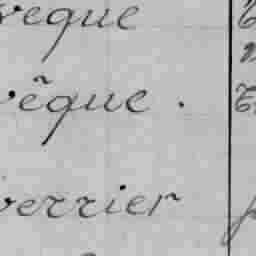 vêque
vêque .
verrier